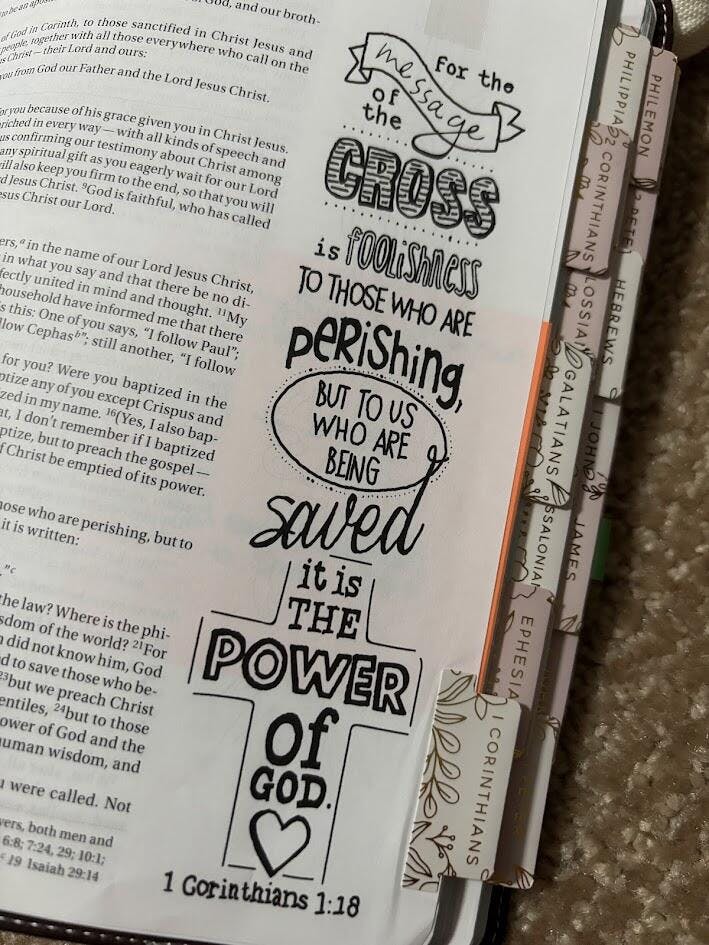 God, and our broth-
of God in Corinth, to those sanctified in Christ Jesus and
people, together with all those everywhere who call on the
Christ—their Lord and ours:
you from God our Father and the Lord Jesus Christ.
for you because of his grace given you in Christ Jesus.
enriched in every way—with all kinds of speech and
us confirming our testimony about Christ among
any spiritual gift as you eagerly wait for our Lord
will also keep you firm to the end, so that you will
Jesus Christ. ⁹God is faithful, who has called
Jesus Christ our Lord.
ers,ᵃ in the name of our Lord Jesus Christ,
in what you say and that there be no di-
fectly united in mind and thought. ¹¹My
household have informed me that there
s this: One of you says, “I follow Paul”;
llow Cephasᵇ”; still another, “I follow
for you? Were you baptized in the
ptize any of you except Crispus and
zed in my name. ¹⁶(Yes, I also bap-
at, I don't remember if I baptized
ptize, but to preach the gospel—
f Christ be emptied of its power.
hose who are perishing, but to
it is written:
.”ᶜ
the law? Where is the phi-
sdom of the world? ²¹For
did not know him, God
d to save those who be-
²³but we preach Christ
entiles, ²⁴but to those
ower of God and the
uman wisdom, and
u were called. Not
vers, both men and
6:8; 7:24, 29; 10:1;
ᶜ 19 Isaiah 29:14
for the
message
of
the
CROSS
is foolishness
TO THOSE WHO ARE
perishing,
BUT TO US
WHO ARE
BEING
saved
it is
THE
POWER
of
GOD.
1 Corinthians 1:18
PHILEMON
PHILIPPIA
2 CORINTHIANS
2 PETE
HEBREWS
LOSSIA
GALATIANS
1 JOHN
SSALONIA
JAMES
EPHESIA
1 CORINTHIANS